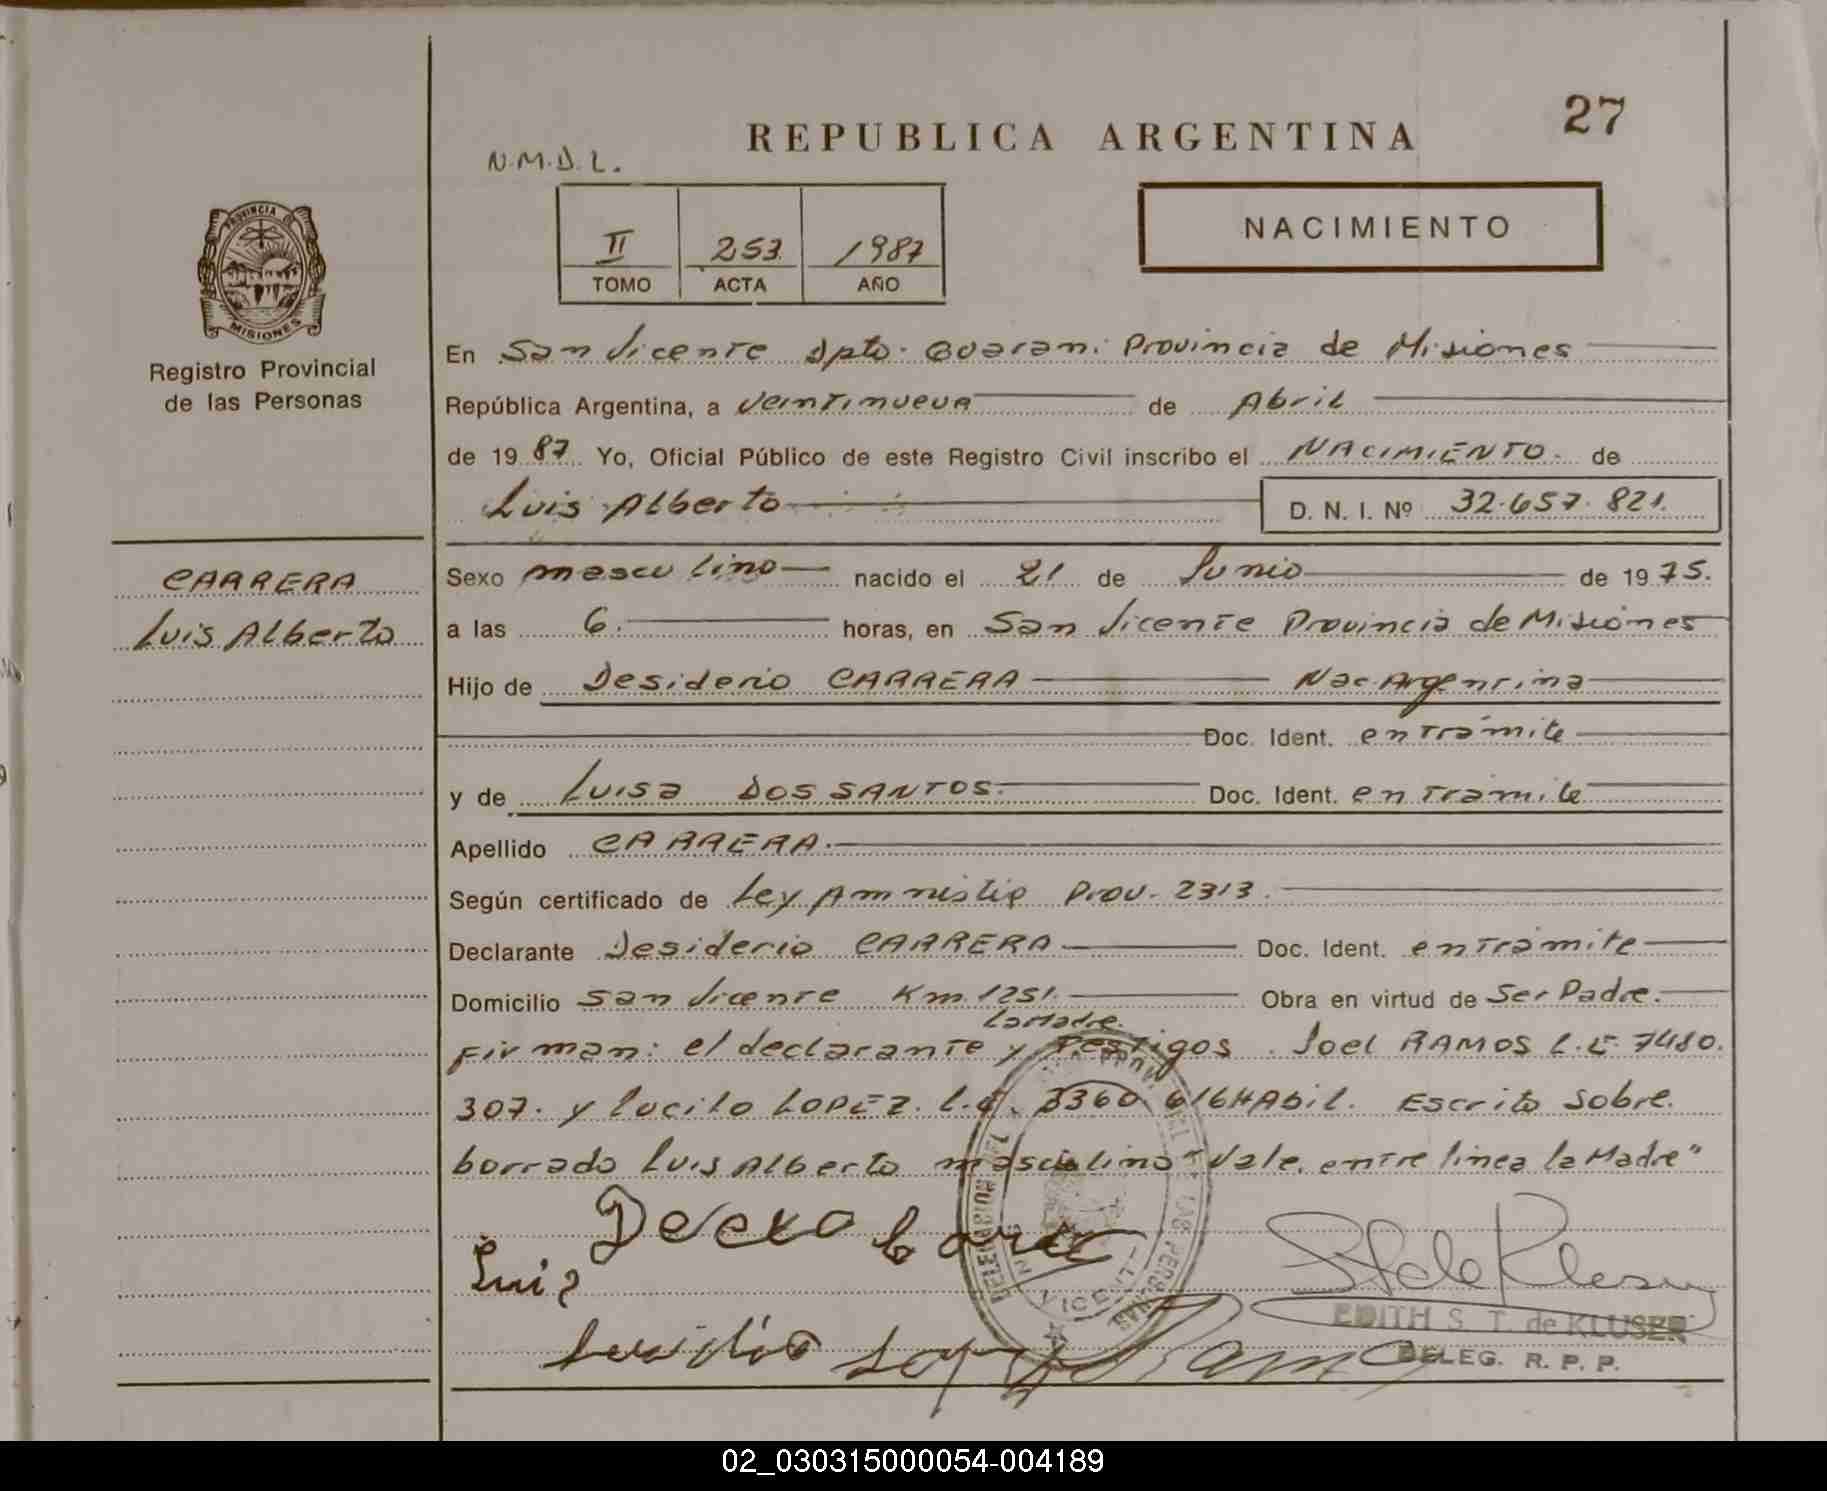 27
REPUBLICA ARGENTINA
N.M.D.L.
NACIMIENTO
II 253 1987
TOMO ACTA AÑO
PROVINCIA
MISIONES
Registro Provincial
de las Personas
CARRERA
Luis Alberto
En San Vicente Dpto. Guarani Provincia de Misiones
República Argentina, a veintinueve de Abril
de 1987 Yo, Oficial Público de este Registro Civil inscribo el NACIMIENTO. de
Luis Alberto D. N. I. Nº 32.657.821.
Sexo masculino nacido el 21 de Junio de 1975.
a las 6. horas, en San Vicente Provincia de Misiones
Hijo de Desiderio CARRERA Nac Argentina
Doc. Ident. en trámite
y de Luisa DOS SANTOS. Doc. Ident. en trámite
Apellido CARRERA.
Según certificado de Ley Amnistia Prov. 2313.
Declarante Desiderio CARRERA Doc. Ident. en trámite
Domicilio San Vicente Km. 1251. Obra en virtud de Ser Padre.
la Madre.
Firman: el declarante y Testigos. Joel RAMOS L.E. 7480.
307. y lucilo LOPEZ. 3360 616 HABIL. Escrito Sobre.
borrado Luis Alberto masculino "Vale, entre linea la Madre"
Luis
EDITH S. T. de KLUSER
DELEG. R. P. P.
02_030315000054-004189